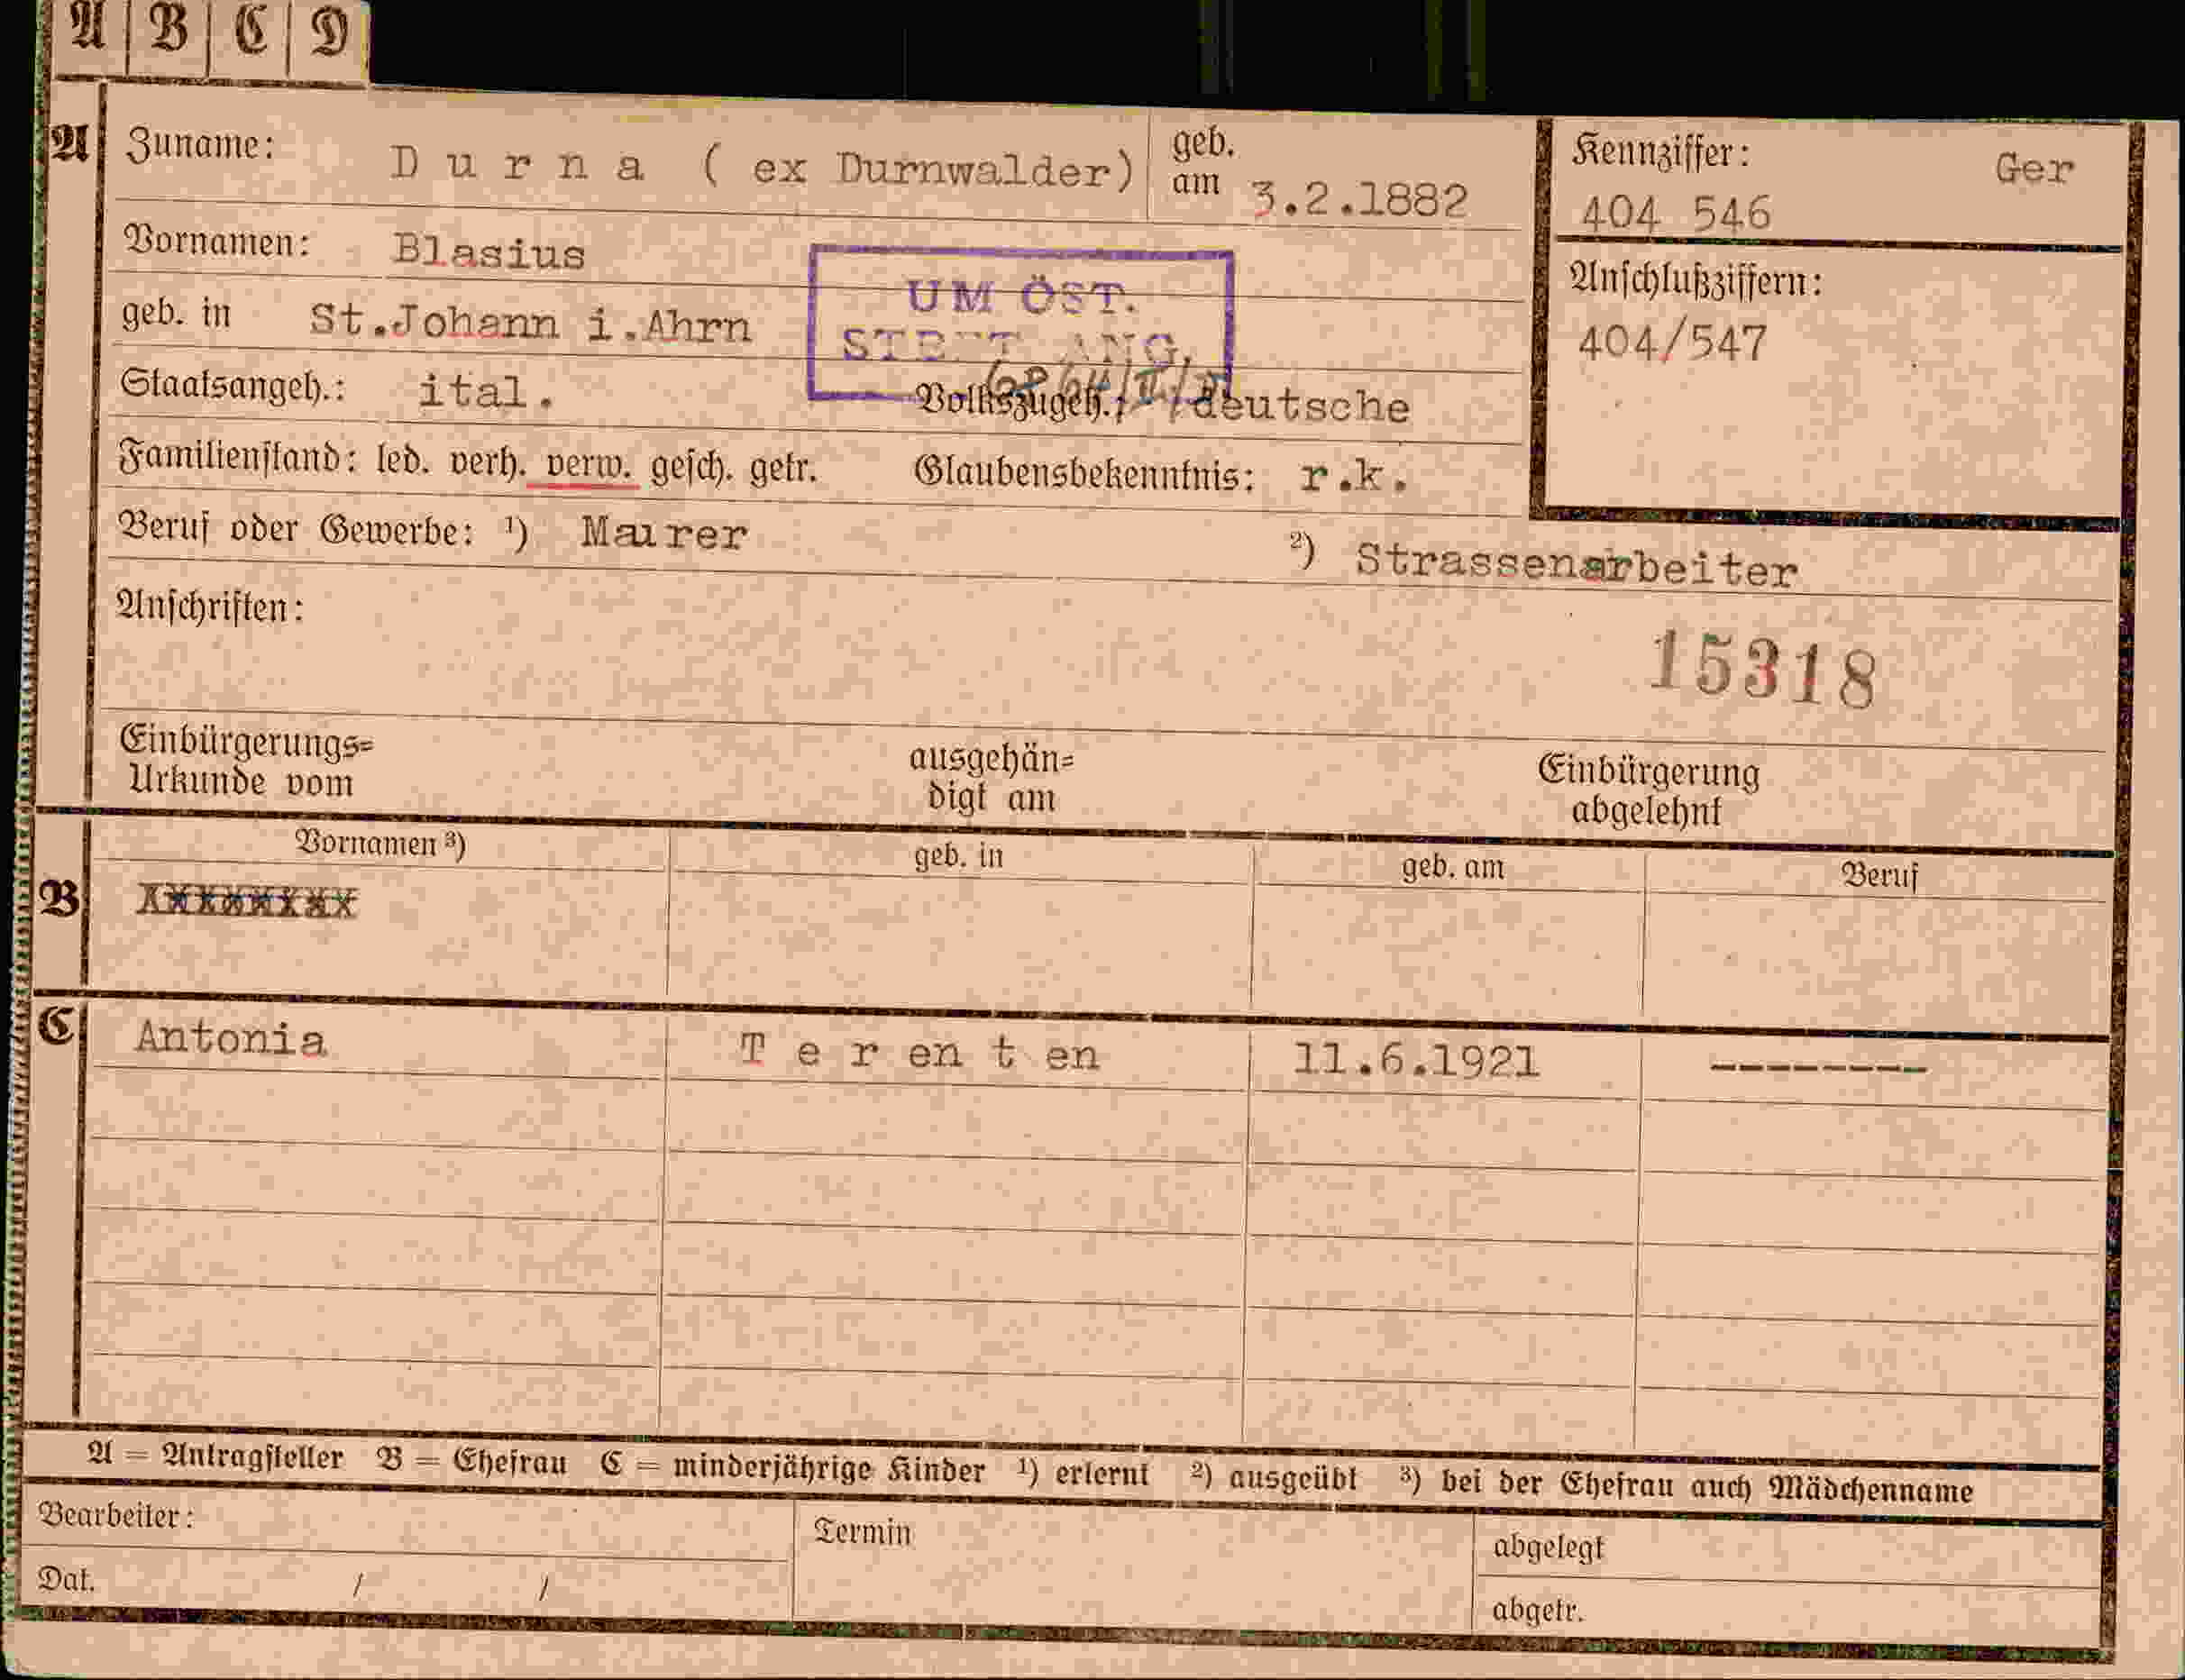 A B C D
A Zuname: Durna ( ex Durnwalder) geb. am 3.2.1882 Kennziffer: Ger
404 546
Vornamen: Blasius
UM ÖST.
Anschlußziffern:
geb. in St.Johann i.Ahrn
ANG.
404/547
Staatsangeh.: ital. Volkszugeh.: deutsche
Familienstand: led. verh. verw. gesch. getr. Glaubensbekenntnis: r.k.
Beruf oder Gewerbe: ¹) Maurer ²) Strassenarbeiter
Anschriften:
15318
Einbürgerungs= Urkunde vom ausgehän= digt am Einbürgerung abgelehnt
Vornamen ³) geb. in geb. am Beruf
B
C Antonia Terenten 11.6.1921 --------
A = Antragsteller B = Ehefrau C = minderjährige Kinder ¹) erlernt ²) ausgeübt ³) bei der Ehefrau auch Mädchenname
Bearbeiter: Termin abgelegt
Dat. / / abgetr.